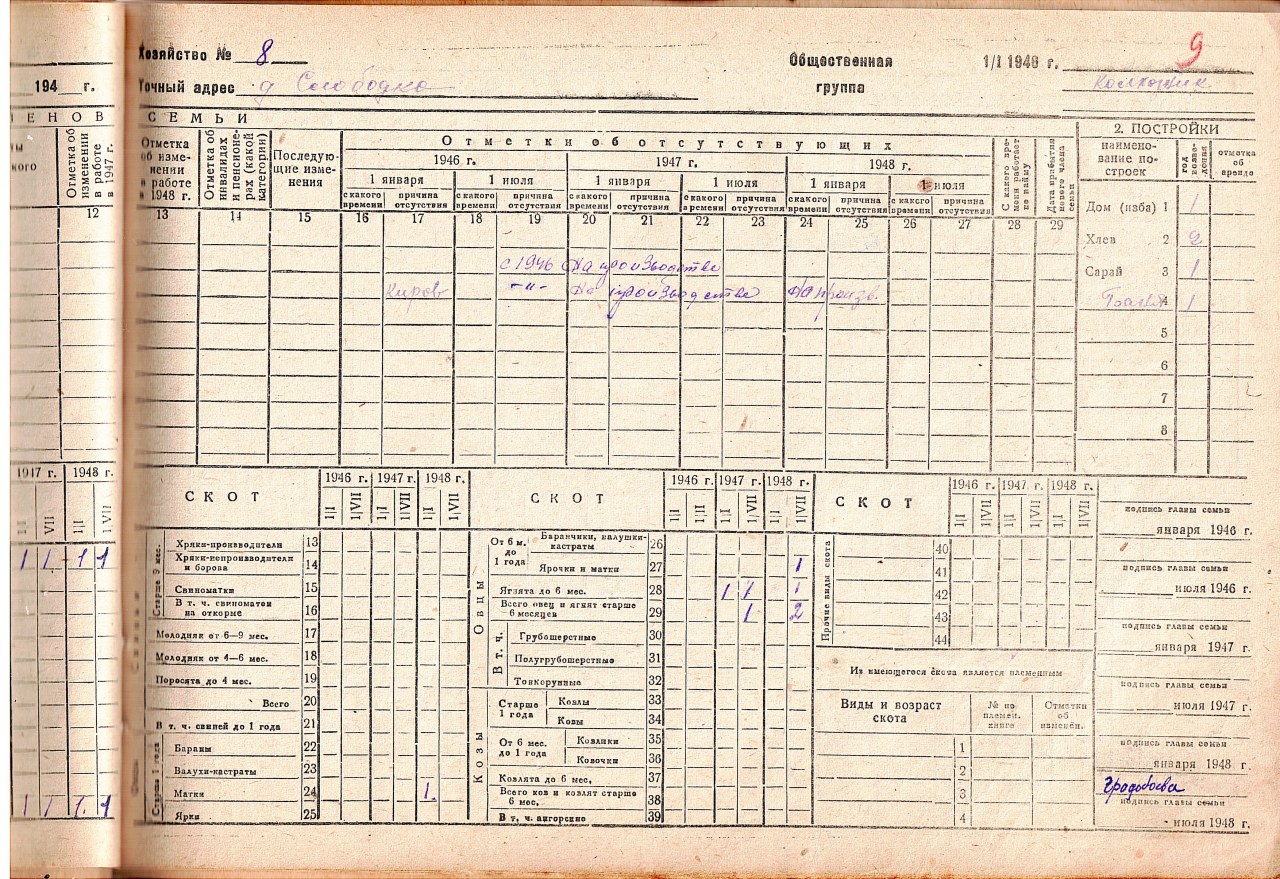 Хозяйство № 8
Общественная группа
1/I 1946 г.
9
194 г.
Точный адрес д Слободка
колхозник
ЕНОВ
СЕМЬИ
кого
Отметка об изменении в работе в 1947 г.
Отметка об изменении в работе в 1948 г.
Отметка об инвалидах и пенсионерах (какой категории)
Последующие изменения
Отметки об отсутствующих
1946 г. 1947 г. 1948 г.
1 января 1 июля 1 января 1 июля 1 января 1 июля
с какого времени причина отсутствия с какого времени причина отсутствия с какого времени причина отсутствия с какого времени причина отсутствия с какого времени причина отсутствия с какого времени причина отсутствия
С какого времени работает по найму
Дата прибытия нового члена семьи
2. ПОСТРОЙКИ
наименование построек
год возведения
отметка об аренде
12 13 14 15 16 17 18 19 20 21 22 23 24 25 26 27 28 29
Дом (изба) 1 1
Хлев 2 2
Сарай 3 1
4 1
5
6
7
8
с 1946 На производстве
Киров -"- На производстве На произв.
1947 г. 1948 г.
VII 1|I 1|VII
1 1 1 1
1 1 1 1
СКОТ
1946 г. 1947 г. 1948 г.
1|I 1|VII 1|I 1|VII 1|I 1|VII
Старше 9 мес.
Хряки-производители 13
Хряки-непроизводители и борова 14
Свиноматки 15
В т. ч. свиноматки на откорме 16
Молодняк от 6—9 мес. 17
Молодняк от 4—6 мес. 18
Поросята до 4 мес. 19
Всего 20
В т. ч. свиней до 1 года 21
Старше 1 года
Бараны 22
Валухи-кастраты 23
Матки 24 1.
Ярки 25
СКОТ
1946 г. 1947 г. 1948 г.
1|I 1|VII 1|I 1|VII 1|I 1|VII
Овцы
От 6 м. до 1 года
Баранчики, валушки-кастраты 26
Ярочки и матки 27 1
Ягнята до 6 мес. 28 1 1 1
Всего овец и ягнят старше 6 месяцев 29 1 2
В т. ч.
Грубошерстные 30
Полугрубошерстные 31
Тонкорунные 32
Козы
Старше 1 года
Козлы 33
Козы 34
От 6 мес. до 1 года
Козлики 35
Козочки 36
Козлята до 6 мес. 37
Всего коз и козлят старше 6 мес. 38
В т. ч. ангорские 39
СКОТ
1946 г. 1947 г. 1948 г.
1|I 1|VII 1|I 1|VII 1|I 1|VII
Прочие виды скота
40
41
42
43
44
Из имеющегося скота является племенным
Виды и возраст скота
№ по племен. книге
Отметки об изменен.
1
2
3
4
подпись главы семьи
января 1946 г.
подпись главы семьи
июля 1946 г.
подпись главы семьи
января 1947 г.
подпись главы семьи
июля 1947 г.
подпись главы семьи
января 1948 г.
Градобоева
подпись главы семьи
июля 1948 г.